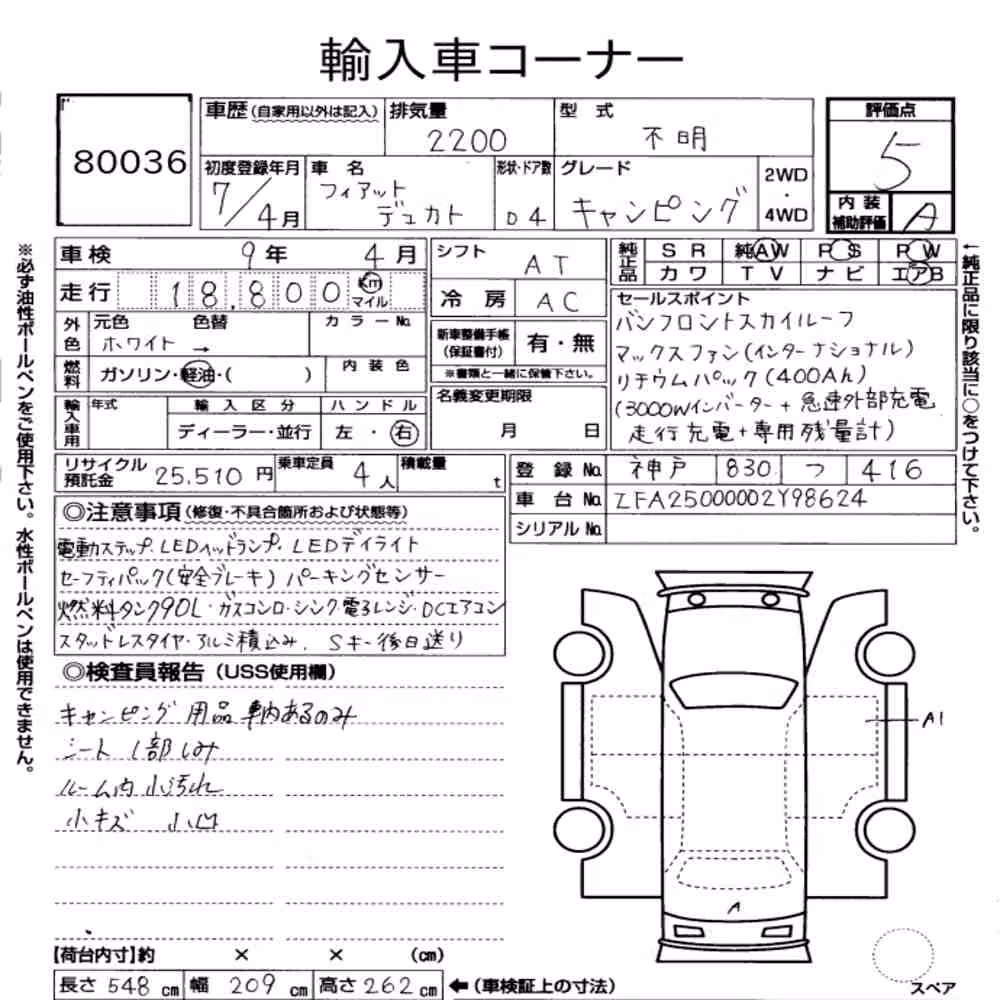 輸入車コーナー
80036
車歴(自家用以外は記入) 排気量 2200 型式 不明
評価点 5
初度登録年月 7/4月 車名 フィアット デュカト 形状・ドア数 D4 グレード キャンピング 2WD・4WD
内装補助評価 A
車検 9年 4月
シフト AT
純正品 SR 純AW PS PW
カワ TV ナビ エアB
走行 18,800 km マイル
冷房 AC
セールスポイント
外色 元色 ホワイト → 色替 カラーNo.
新車整備手帳(保証書付) 有・無
※書類と一緒に保管下さい。
バンフロントスカイルーフ
マックスファン(インターナショナル)
リチウムパック(400Ah)
(3000Wインバーター+急速外部充電
走行充電+専用残量計)
燃料 ガソリン・軽油・( ) 内装色
名義変更期限 月 日
輸入車用 年式 輸入区分 ディーラー・並行 ハンドル 左・右
リサイクル預託金 25,510円 乗車定員 4人 積載量 t
登録No. 神戸 830 つ 416
車台No. ZFA25000002Y98624
シリアルNo.
◎注意事項(修復・不具合箇所および状態等)
電動ステップ・LEDヘッドランプ・LEDデイライト
セーフティパック(安全ブレーキ) パーキングセンサー
燃料タンク90L・ガスコンロ・シンク・電子レンジ・DCエアコン
スタッドレスタイヤ・アルミ積込み、Sキー後日送り
◎検査員報告(USS使用欄)
キャンピング用品車内あるのみ
シート1部しみ
ルーム内小汚れ
小キズ 小凹
A1
A
【荷台内寸】約 × × (cm)
長さ 548 cm 幅 209 cm 高さ 262 cm ←(車検証上の寸法)
スペア
※必ず油性ボールペンをご使用下さい。水性ボールペンは使用できません。
←純正品に限り該当に○をつけて下さい。